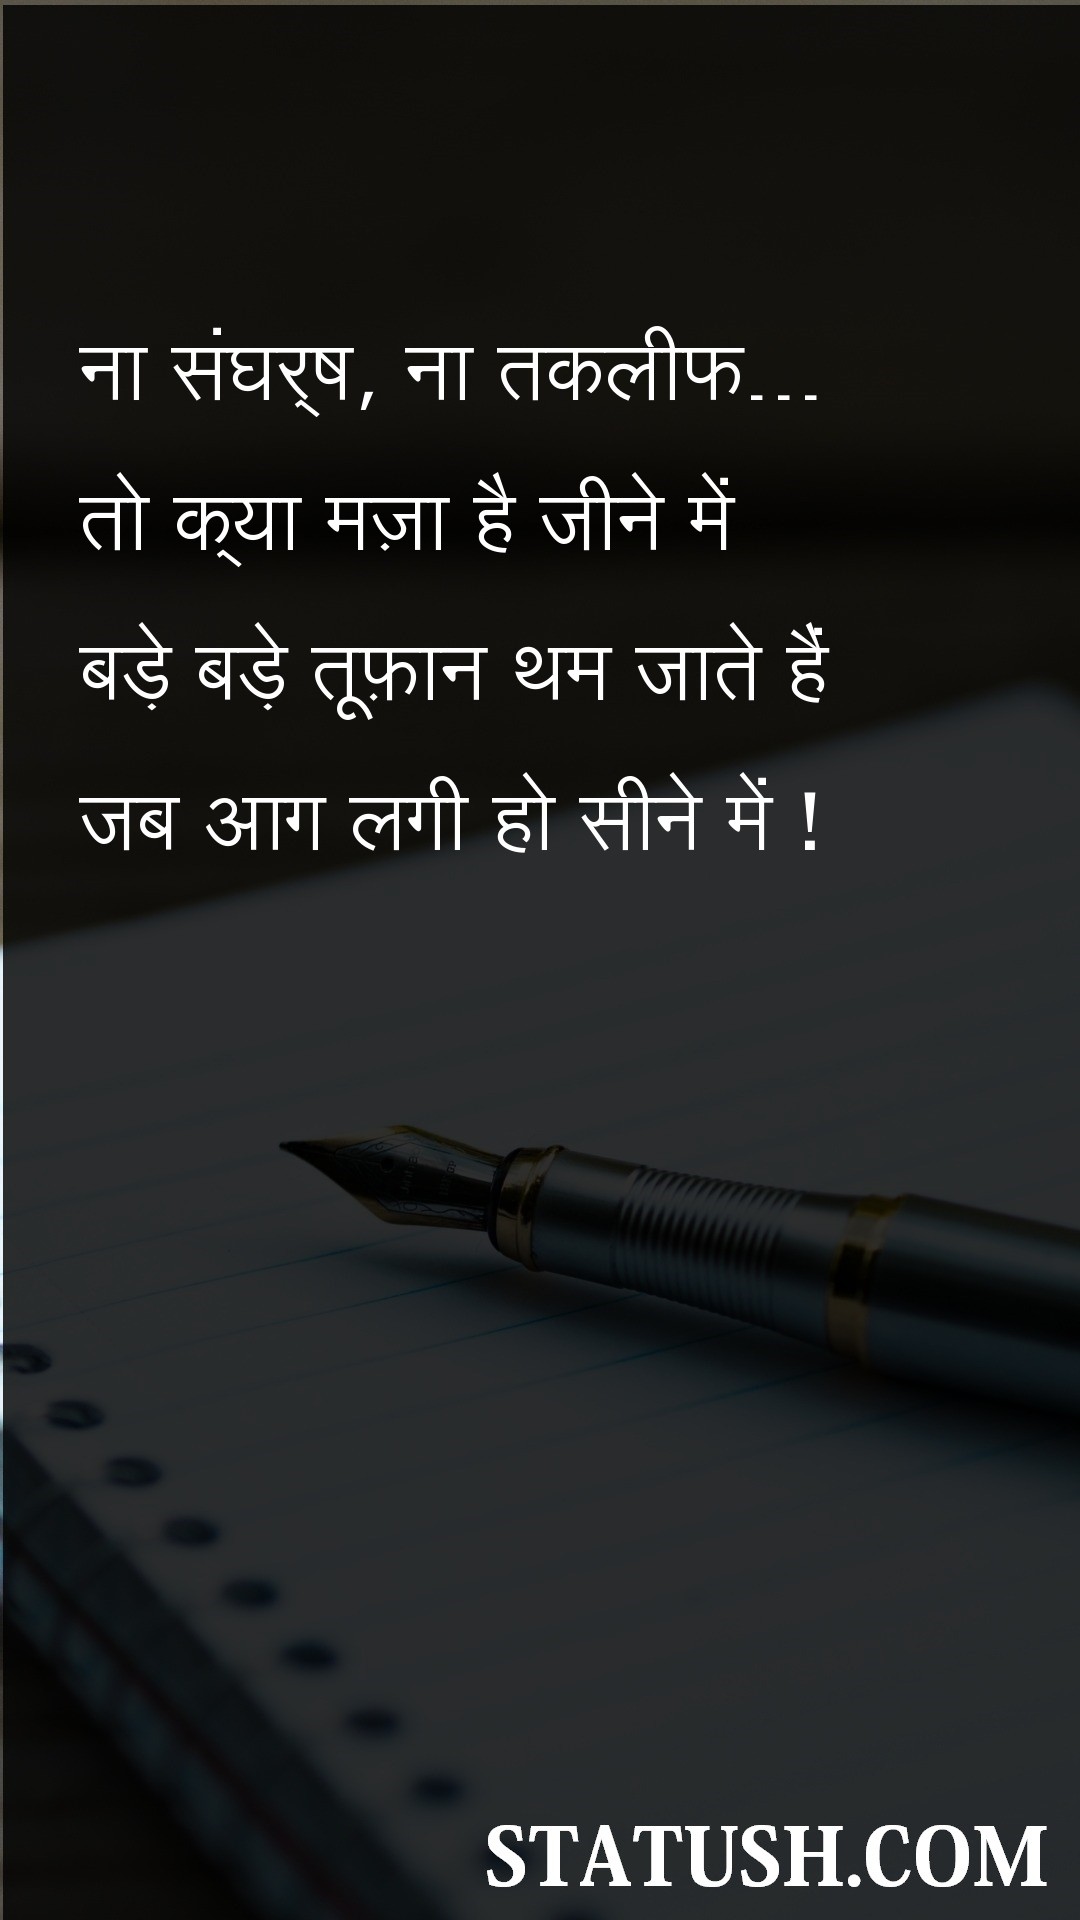 ना संघर्ष, ना तकलीफ...
तो क्या मज़ा है जीने में
बड़े बड़े तूफ़ान थम जाते हैं
जब आग लगी हो सीने में !
STATUSH.COM